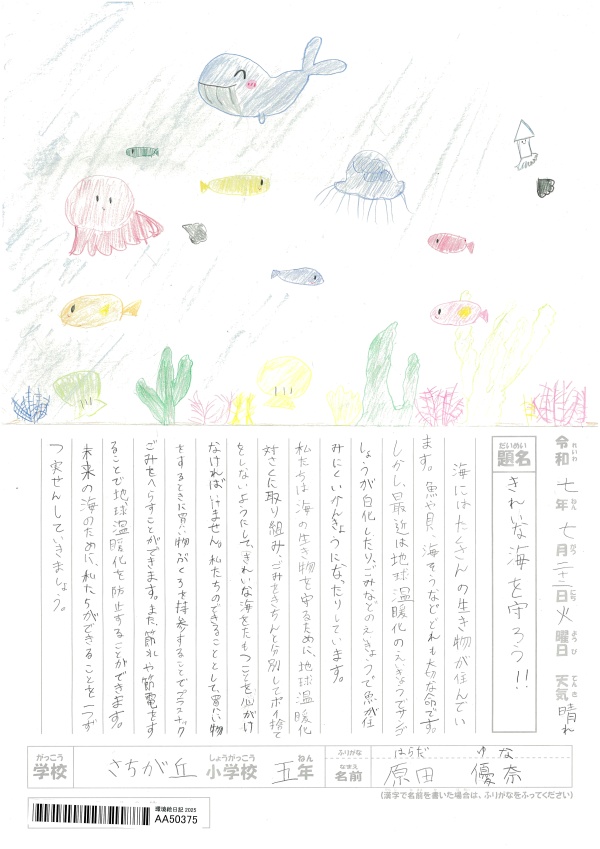 令和七年七月二十二日火曜日 天気晴れ
題名 きれいな海を守ろう!!
海にはたくさんの生き物が住んでい
ます。魚や貝、海そうなどどれも大切な命です。
しかし、最近は地球温暖化のえいきょうでサンゴ
しょうが白化したり、ごみなどのえいきょうで魚が住
みにくいかんきょうになったりしています。
私たちは海の生き物を守るために、地球温暖化
対さくに取り組み、ごみをきちんと分別してポイ捨て
をしないようにして、きれいな海をたもつことを心がけ
なければいけません。私たちのできることとして、買い物
をするときに買い物ぶくろを持参することでプラスチック
ごみをへらすことができます。また、節水や節電をす
ることで地球温暖化を防止することができます。
未来の海のために、私たちができることを一つず
つ実せんしていきましょう。
学校 さちが丘小学校 五年 名前 原田 優奈
がっこう しょうがっこう ねん ふりがな なまえ はらだ ゆな
(漢字で名前を書いた場合は、ふりがなをふってください)
環境絵日記 2025
AA50375